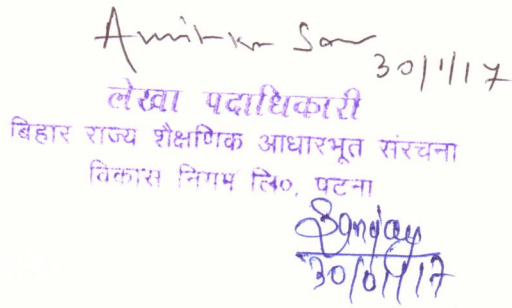 Amit Kr Sar
30/1/17
लेखा पदाधिकारी
बिहार राज्य शैक्षणिक आधारभूत संरचना
विकास निगम लि०, पटना
Sanjay
30/01/17